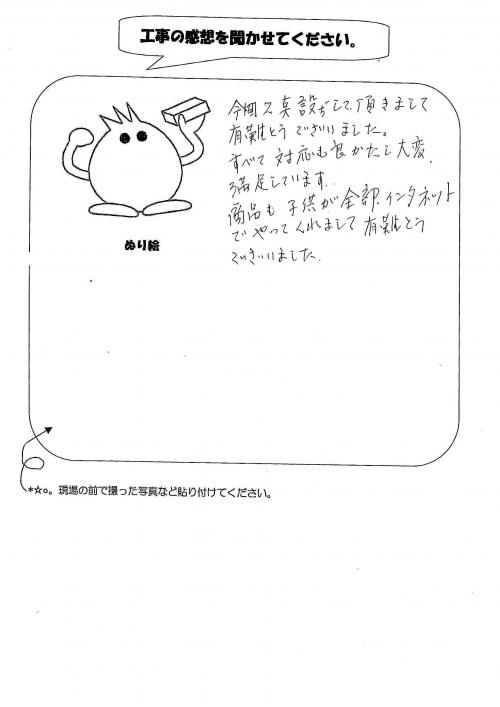 工事の感想を聞かせてください。
今畑ス真設ぢして頂きまして
有難とうございました。
すべて対応も良かたし大変、
満足しています。
商品も子供が全部、インタネット
でやってくれまして有難とう
ございました。
ぬり絵
*☆○。現場の前で撮った写真など貼り付けてください。